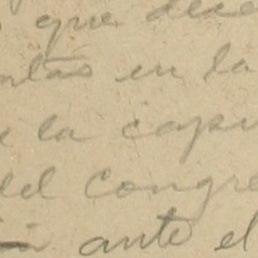 que dese
en la
la capi
del congre
ante el